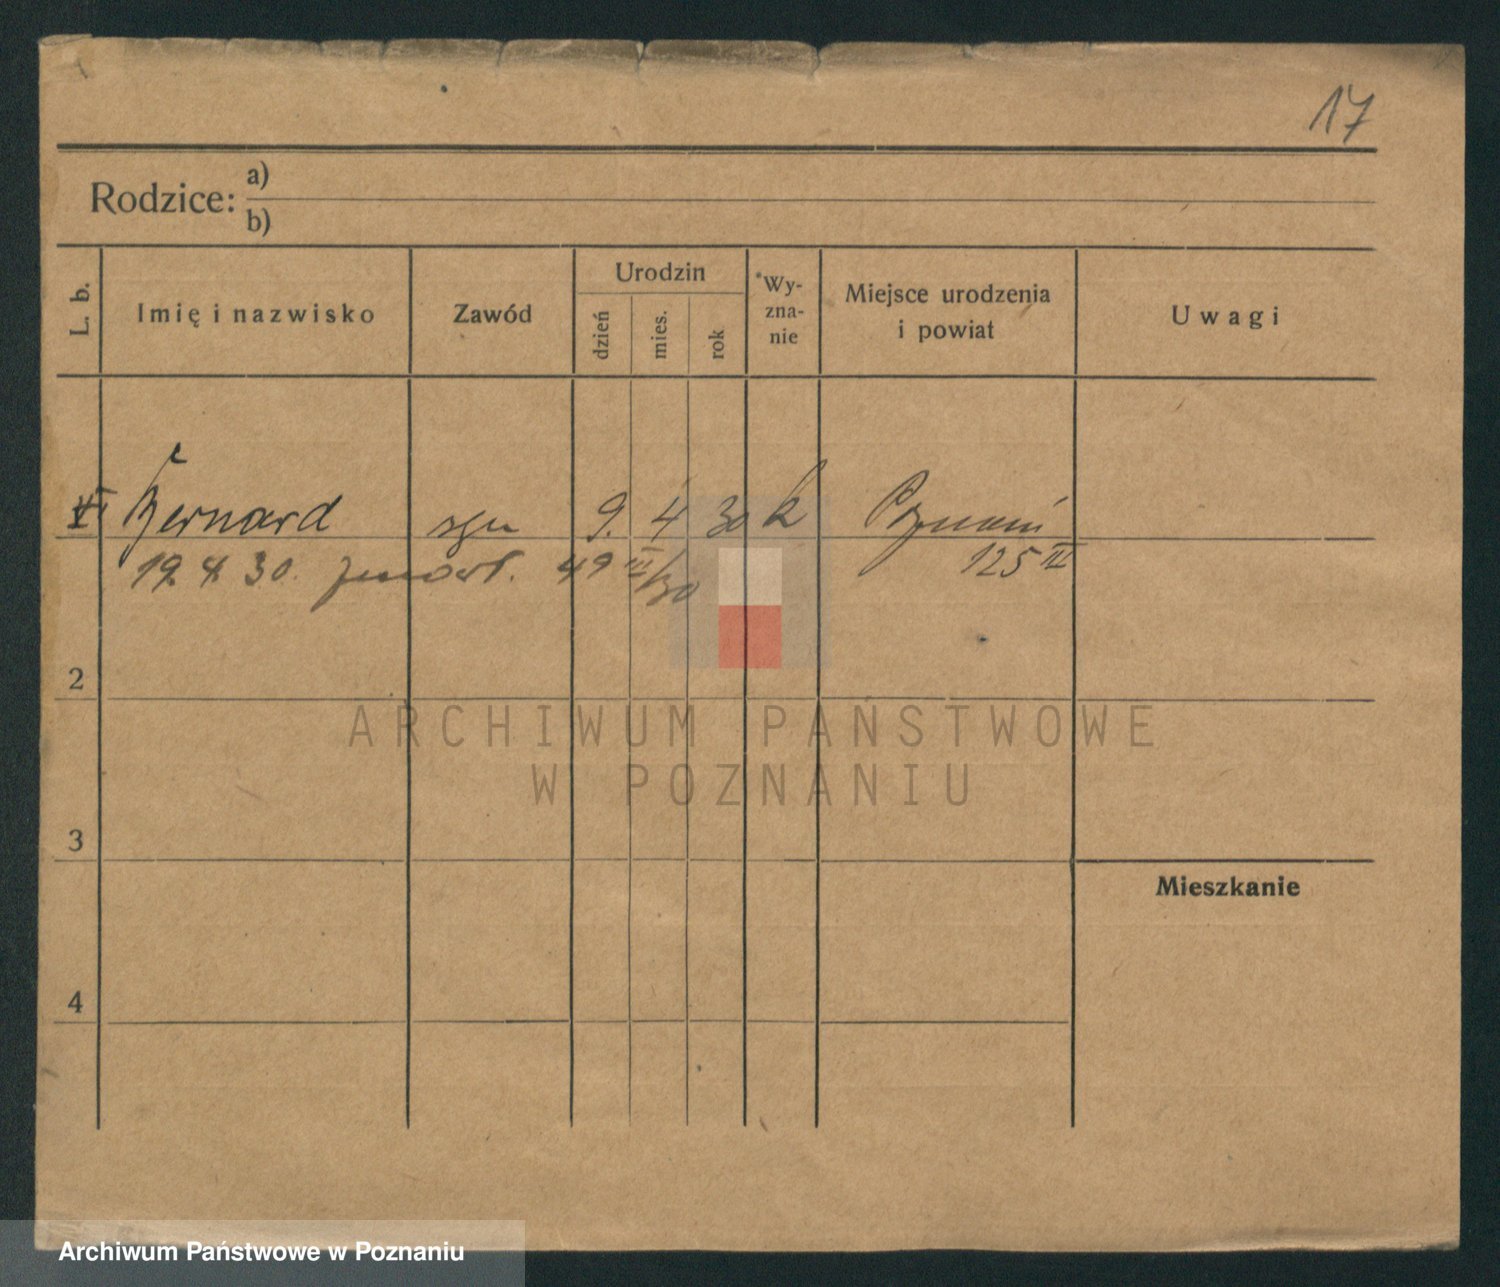 17
Rodzice: a)
b)
L. b. Imię i nazwisko Zawód Urodzin dzień mies. rok *Wy-zna-nie Miejsce urodzenia i powiat Uwagi
VI Bernard syn 9. 4 30 k Poznań
19. 4. 30. zmarł. 49 III/30 125 IV
2
3
Mieszkanie
4
ARCHIWUM PAŃSTWOWE
W POZNANIU
Archiwum Państwowe w Poznaniu